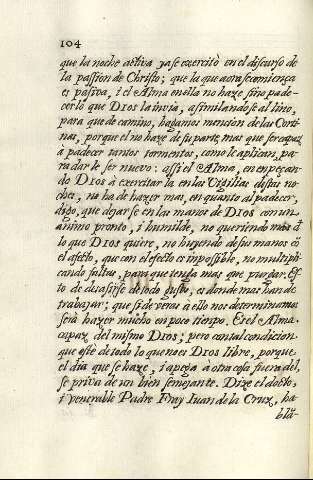 104
que la noche activa ya se exercitò en el discurso de
la passion de Christo; que la que aora se comiença
es passiva, i el Alma en ella no haze sino pade-
cer lo que DIOS la invia, asimilandose al lino,
para que de camino, hagamos mencion de las Corti-
nas, porque el no haze de su parte mas que ser capaz
à padecer tantos tormentos, como le aplican, pa-
ra darle ser nuevo: assi el Alma, en empeçan-
do DIOS à exercitarla en las Vigilias destas no-
ches, no ha de hazer mas, en quanto al padecer,
digo, que dejarse en las manos de DIOS con un
animo pronto, i humilde, no queriendo mas de
lo que DIOS quiere, no huyendo de sus manos cõ
el afecto, que con el efecto es impossible, no multipli-
cando faltas, para que tenga mas que purgar. Es-
to de desasirse de todo gusto, es donde mas han de
trabajar; que si de veras a ello nos determinamos
serà hazer mucho en poco tiempo. Es el Alma
capaz del mismo DIOS; pero con tal condicion
que estè de todo lo que no es DIOS libre, porque
el dia que se haze, i apega à otra cosa fuera del,
se priva de un bien semejante. Dize el docto,
i venerable Padre Fray Iuan de la Cruz, ha-
blã-